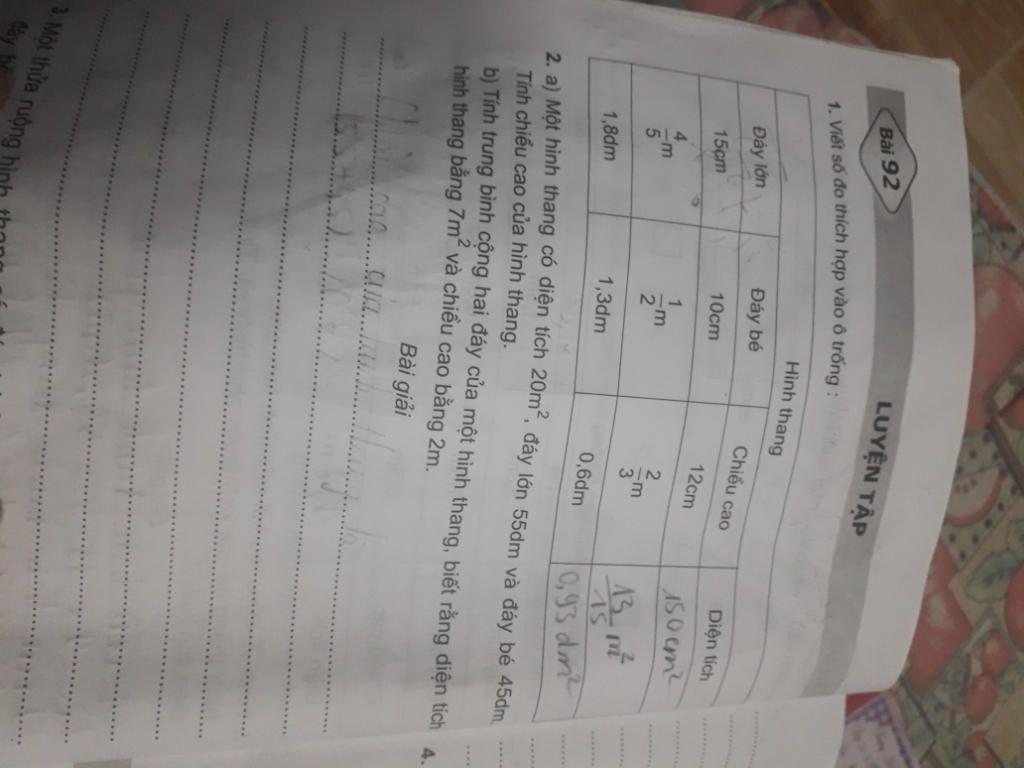 Bài 92
LUYỆN TẬP
1. Viết số đo thích hợp vào ô trống :
Hình thang
Đáy lớn Đáy bé Chiều cao Diện tích
15cm 10cm 12cm 150cm²
4/5 m 1/2 m 2/3 m 13/15 m²
1,8dm 1,3dm 0,6dm 0,93 dm²
2. a) Một hình thang có diện tích 20m², đáy lớn 55dm và đáy bé 45dm.
Tính chiều cao của hình thang.
b) Tính trung bình cộng hai đáy của một hình thang, biết rằng diện tích
hình thang bằng 7m² và chiều cao bằng 2m.
Bài giải
3. Một thửa ruộng hình thang có
đáy
4.